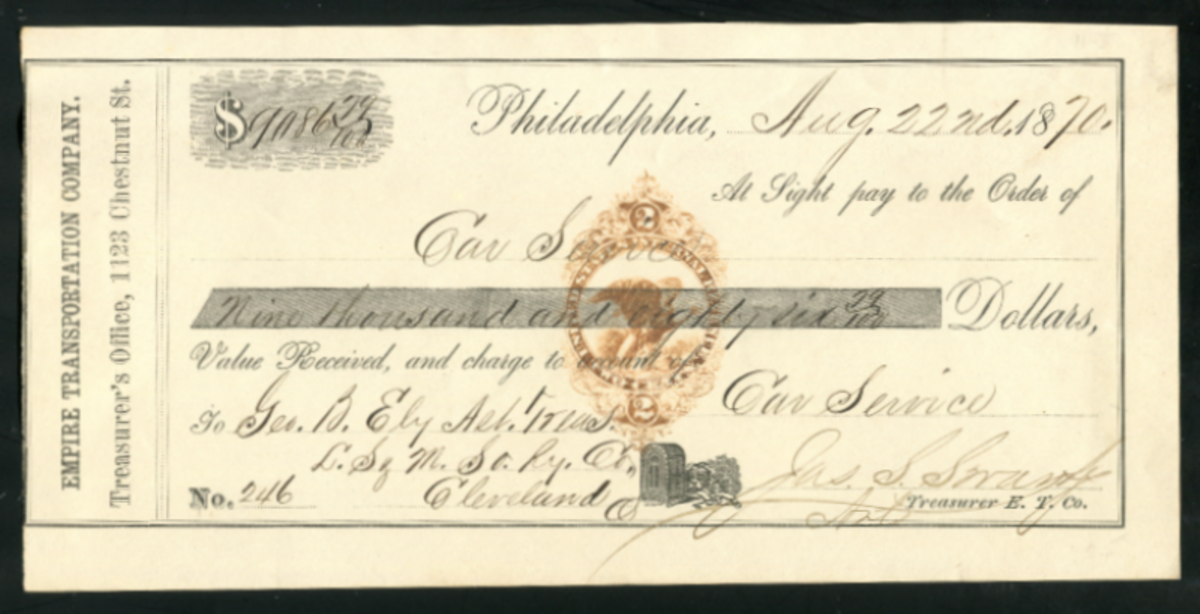 EMPIRE TRANSPORTATION COMPANY.
Treasurer's Office, 1123 Chestnut St.
$9086 29/100
Philadelphia, Aug. 22nd. 1870.
At Sight pay to the Order of
Car Service
Nine thousand and eighty six 29/100 Dollars,
Value Received, and charge to account of
Car Service
To Geo. B. Ely Asst. Treas.
L. S. & M. So. Ry. Co.
Cleveland O
No. 246
Jas. S.
Treasurer E. T. Co.
2
2